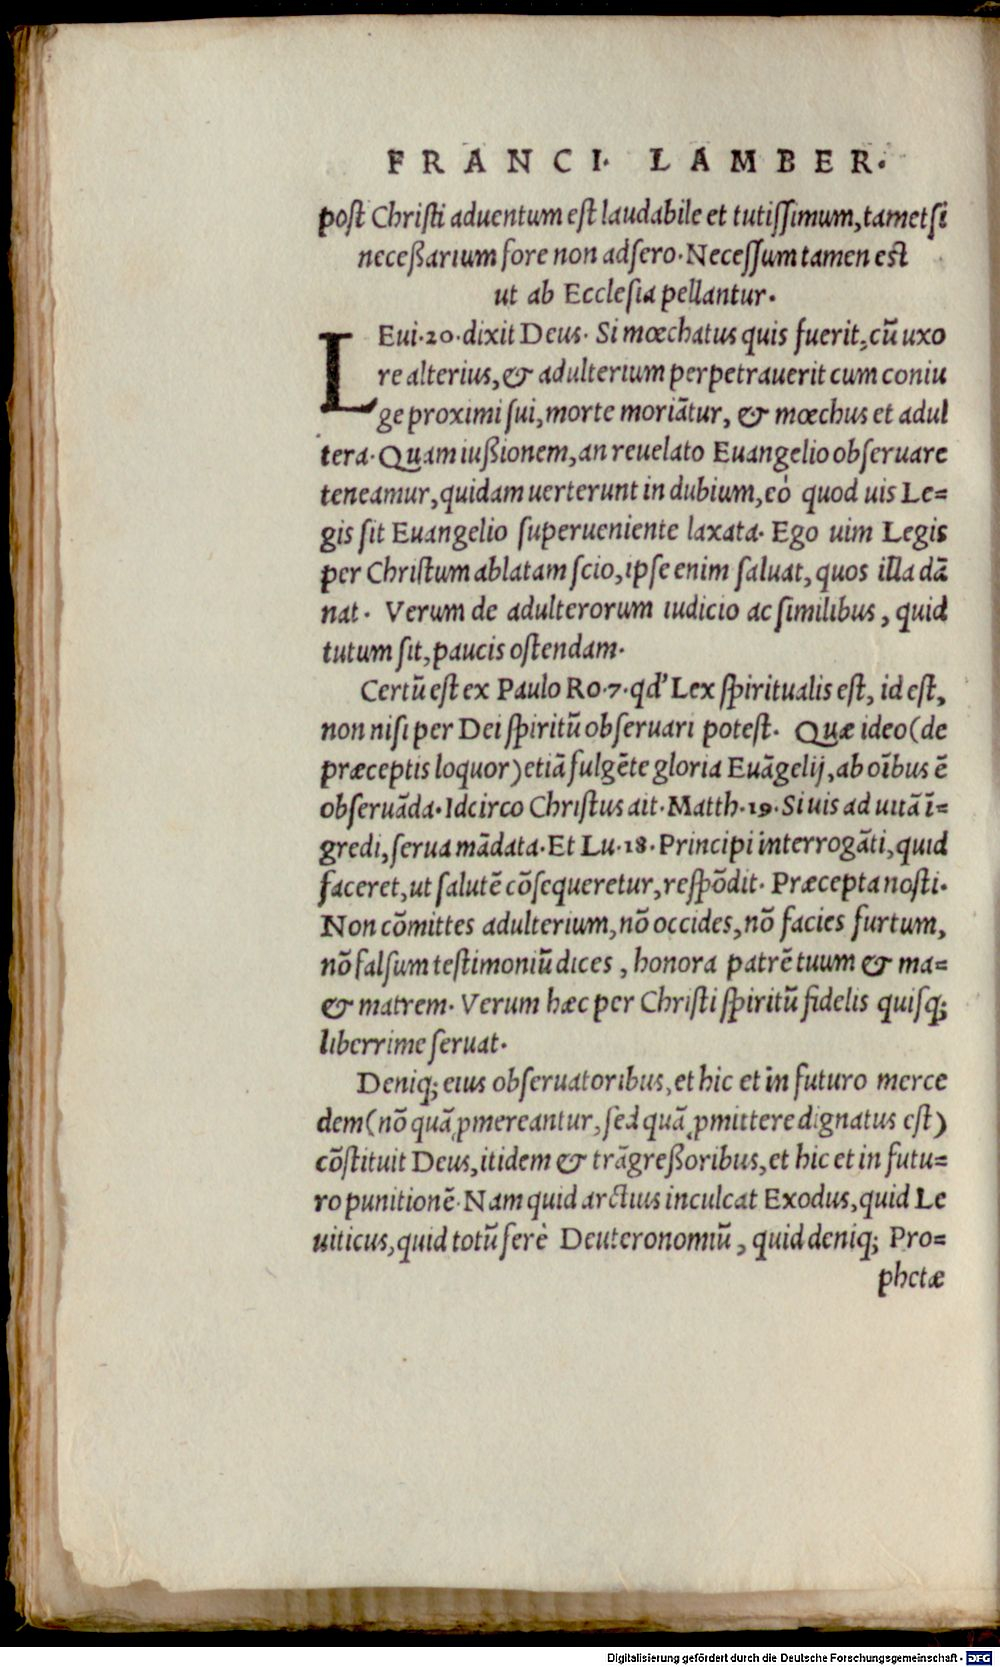 FRANCI. LAMBER.
post Christi aduentum est laudabile et tutissimum, tametsi
neceßarium fore non adsero. Necessum tamen est
ut ab Ecclesia pellantur.
LEui. 20. dixit Deus. Si mœchatus quis fuerit, cū uxo
re alterius, & adulterium perpetrauerit cum coniu
ge proximi sui, morte moriātur, & mœchus et adul
tera. Quam iußionem, an reuelato Euangelio obseruare
teneamur, quidam uerterunt in dubium, eò quod uis Le=
gis sit Euangelio superueniente laxata. Ego uim Legis
per Christum ablatam scio, ipse enim saluat, quos illa dā
nat. Verum de adulterorum iudicio ac similibus, quid
tutum sit, paucis ostendam.
Certū est ex Paulo Ro. 7. qd' Lex spiritualis est, id est,
non nisi per Dei spiritū obseruari potest. Quæ ideo (de
præceptis loquor) etiā fulgēte gloria Euāgelij, ab oībus ē
obseruāda. Idcirco Christus ait. Matth. 19. Si uis ad uitā ī=
gredi, serua mādata. Et Lu. 18. Principi interrogāti, quid
faceret, ut salutē cōsequeretur, respōdit. Præcepta nosti.
Non cōmittes adulterium, nō occides, nō facies furtum,
nō falsum testimoniū dices, honora patrē tuum & ma=
& matrem. Verum hæc per Christi spiritū fidelis quisq;
liberrime seruat.
Deniq; eius obseruatoribus, et hic et in futuro merce
dem (nō quā ꝓmereantur, sed quā ꝓmittere dignatus est)
cōstituit Deus, itidem & trāsgreßoribus, et hic et in futu=
ro punitionē. Nam quid arctius inculcat Exodus, quid Le
uiticus, quid totū ferè Deuteronomiū, quid deniq; Pro=
phetæ
Digitalisierung gefördert durch die Deutsche Forschungsgemeinschaft - DFG